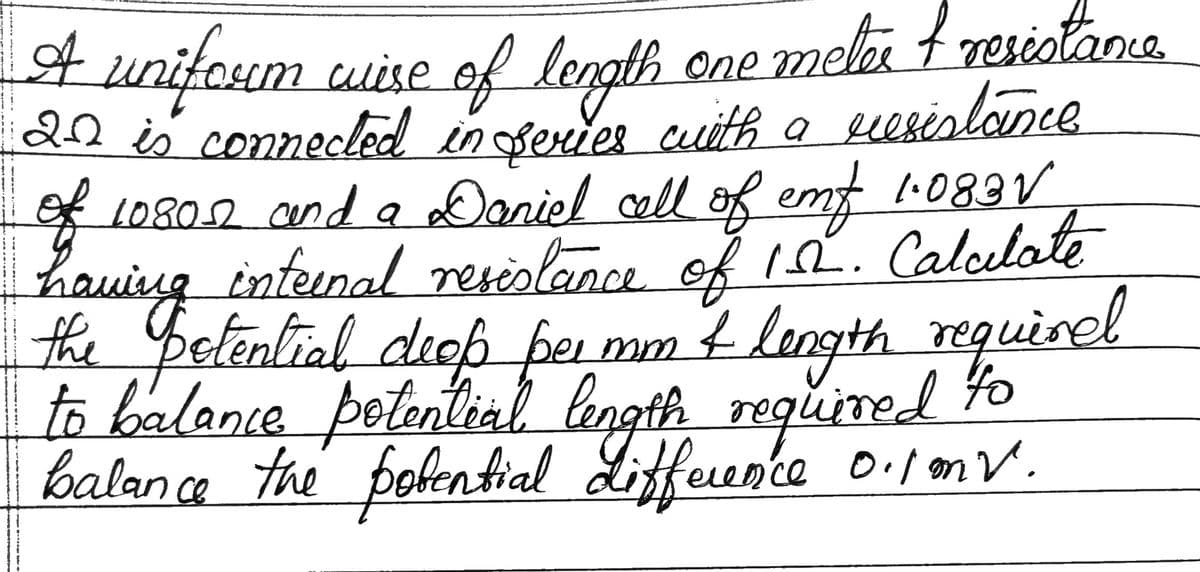 A uniform wise of length one meter & resistance
2Ω is connected in series with a resistance
of 1080Ω and a Daniel cell of emf 1.083V
having internal resistance of 1Ω. Calculate
the potential drop per mm & length requirel
to balance potential length required to
balance the potential difference 0.1mV.